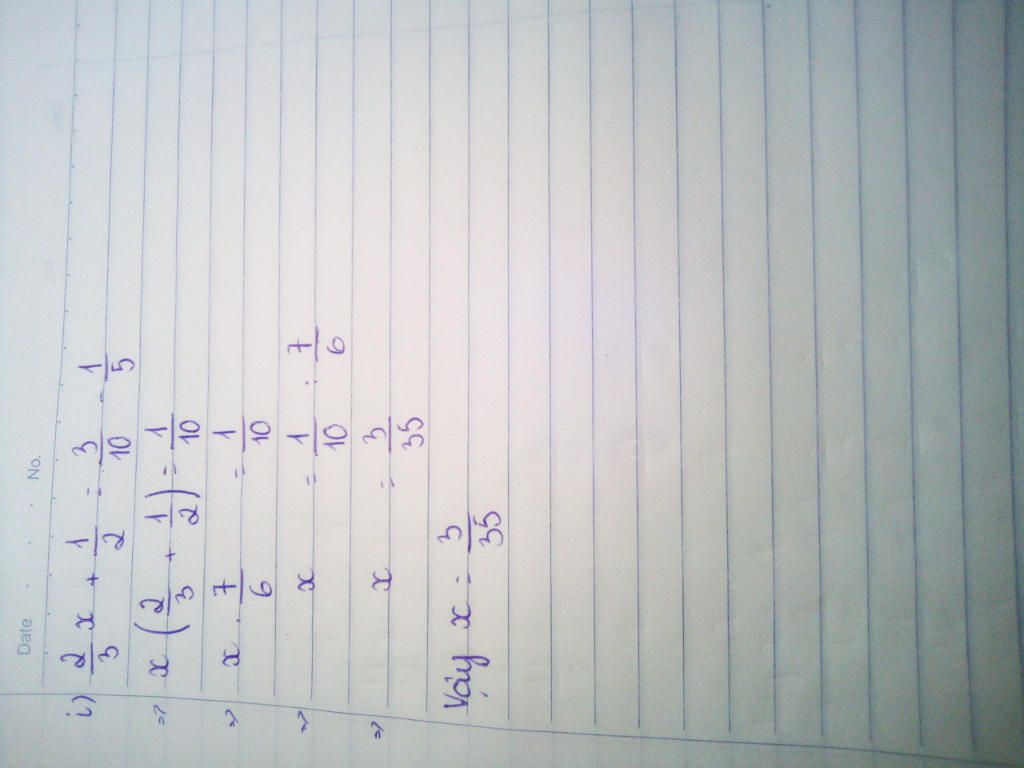 Date . . No.
i) 2/3 x + 1/2 = 3/10 - 1/5
=> x (2/3 + 1/2) = 1/10
=> x . 7/6 = 1/10
=> x = 1/10 : 7/6
=> x = 3/35
Vậy x = 3/35